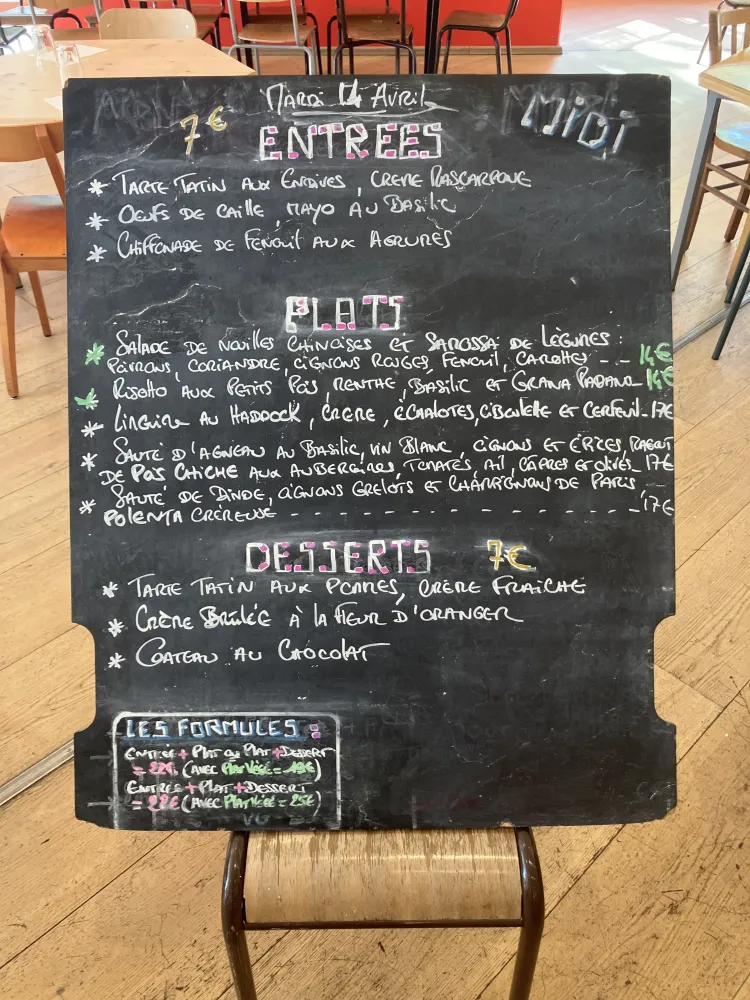 Mardi 14 Avril
7€ MIDI
ENTREES
* TARTE TATIN AUX ENDIVES, CREME MASCARPONE
* OEUFS DE CAILLE, MAYO AU BASILIC
* CHIFFONADE DE FENOUIL AUX AGRUMES
PLATS
* SALADE DE NOUILLES CHINOISES ET SAMOSSA DE LÉGUMES :
POIVRONS, CORIANDRE, OIGNONS ROUGES, FENOUIL, CAROTTES -- 14€
* RISOTTO AUX PETITS POIS, MENTHE, BASILIC ET GRANA PADANO - 14€
* LINGUINE AU HADDOCK, CRÈME, ÉCHALOTES, CIBOULETTE ET CERFEUIL - 17€
* SAUTÉ D'AGNEAU AU BASILIC, VIN BLANC, OIGNONS ET RAGOUT
DE POIS CHICHE AUX AUBERGINES, TOMATES, AIL, CÂPRES ET OLIVES - 17€
* SAUTÉ DE DINDE, OIGNONS GRELOTS ET CHAMPIGNONS DE PARIS --
POLENTA CRÉMEUSE - - - - - - - - - - - 17€
DESSERTS 7€
* TARTE TATIN AUX POMMES, CRÈME FRAÎCHE
* CRÈME BRULÉE À LA FLEUR D'ORANGER
* GATEAU AU CHOCOLAT
LES FORMULES :
ENTRÉE + PLAT OU PLAT + DESSERT
= 22€ (AVEC PLAT VÉGÉ = 19€)
ENTRÉE + PLAT + DESSERT
= 28€ (AVEC PLAT VÉGÉ = 25€)